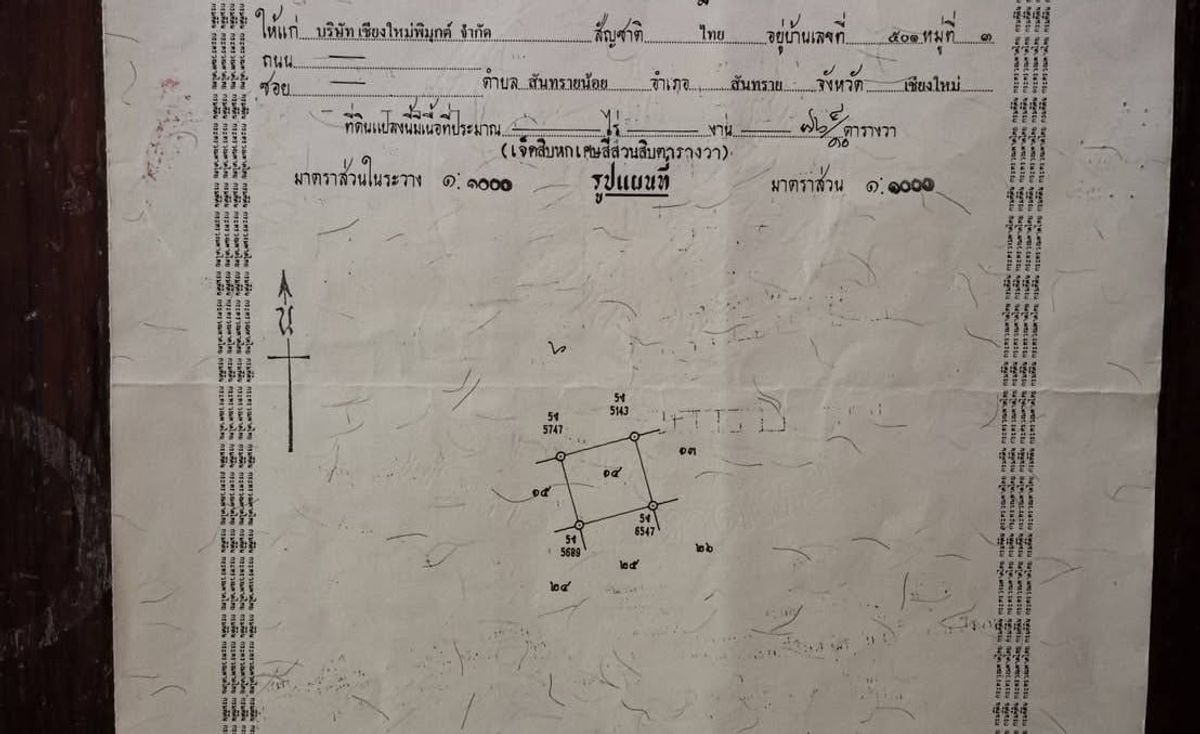 ให้แก่ บริษัท เชียงใหม่พิมุกต์ จำกัด สัญชาติ ไทย อยู่บ้านเลขที่ ๕๐๑ หมู่ที่ ๓
ถนน —
ซอย — ตำบล สันทรายน้อย อำเภอ สันทราย จังหวัด เชียงใหม่
ที่ดินแปลงนี้มีเนื้อที่ประมาณ — ไร่ — งาน ๗๖ ๔/๑๐ ตารางวา
(เจ็ดสิบหกเศษสี่ส่วนสิบตารางวา)
มาตราส่วนในระวาง ๑:๑๐๐๐ รูปแผนที่ มาตราส่วน ๑:๑๐๐๐
น
๖
5ช
5143
5ช
5747
๑๓
๑๔
๑๕
5ช
6547
5ช
5689
๒๖
๒๕
๒๔